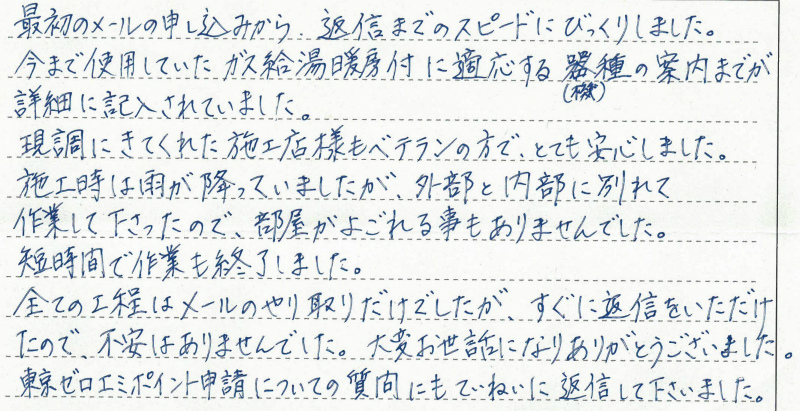 最初のメールの申し込みから、返信までのスピードにびっくりしました。
今まで使用していたガス給湯暖房付に適応する器種の案内までが
(機)
詳細に記入されていました。
現調にきてくれた施工店様もベテランの方で、とても安心しました。
施工時は雨が降っていましたが、外部と内部に別れて
作業して下さったので、部屋がよごれる事もありませんでした。
短時間で作業も終了しました。
全ての工程はメールのやり取りだけでしたが、すぐに返信をいただけ
たので、不安はありませんでした。大変お世話になりありがとうございました。
東京ゼロエミポイント申請についての質問にもていねいに返信して下さいました。